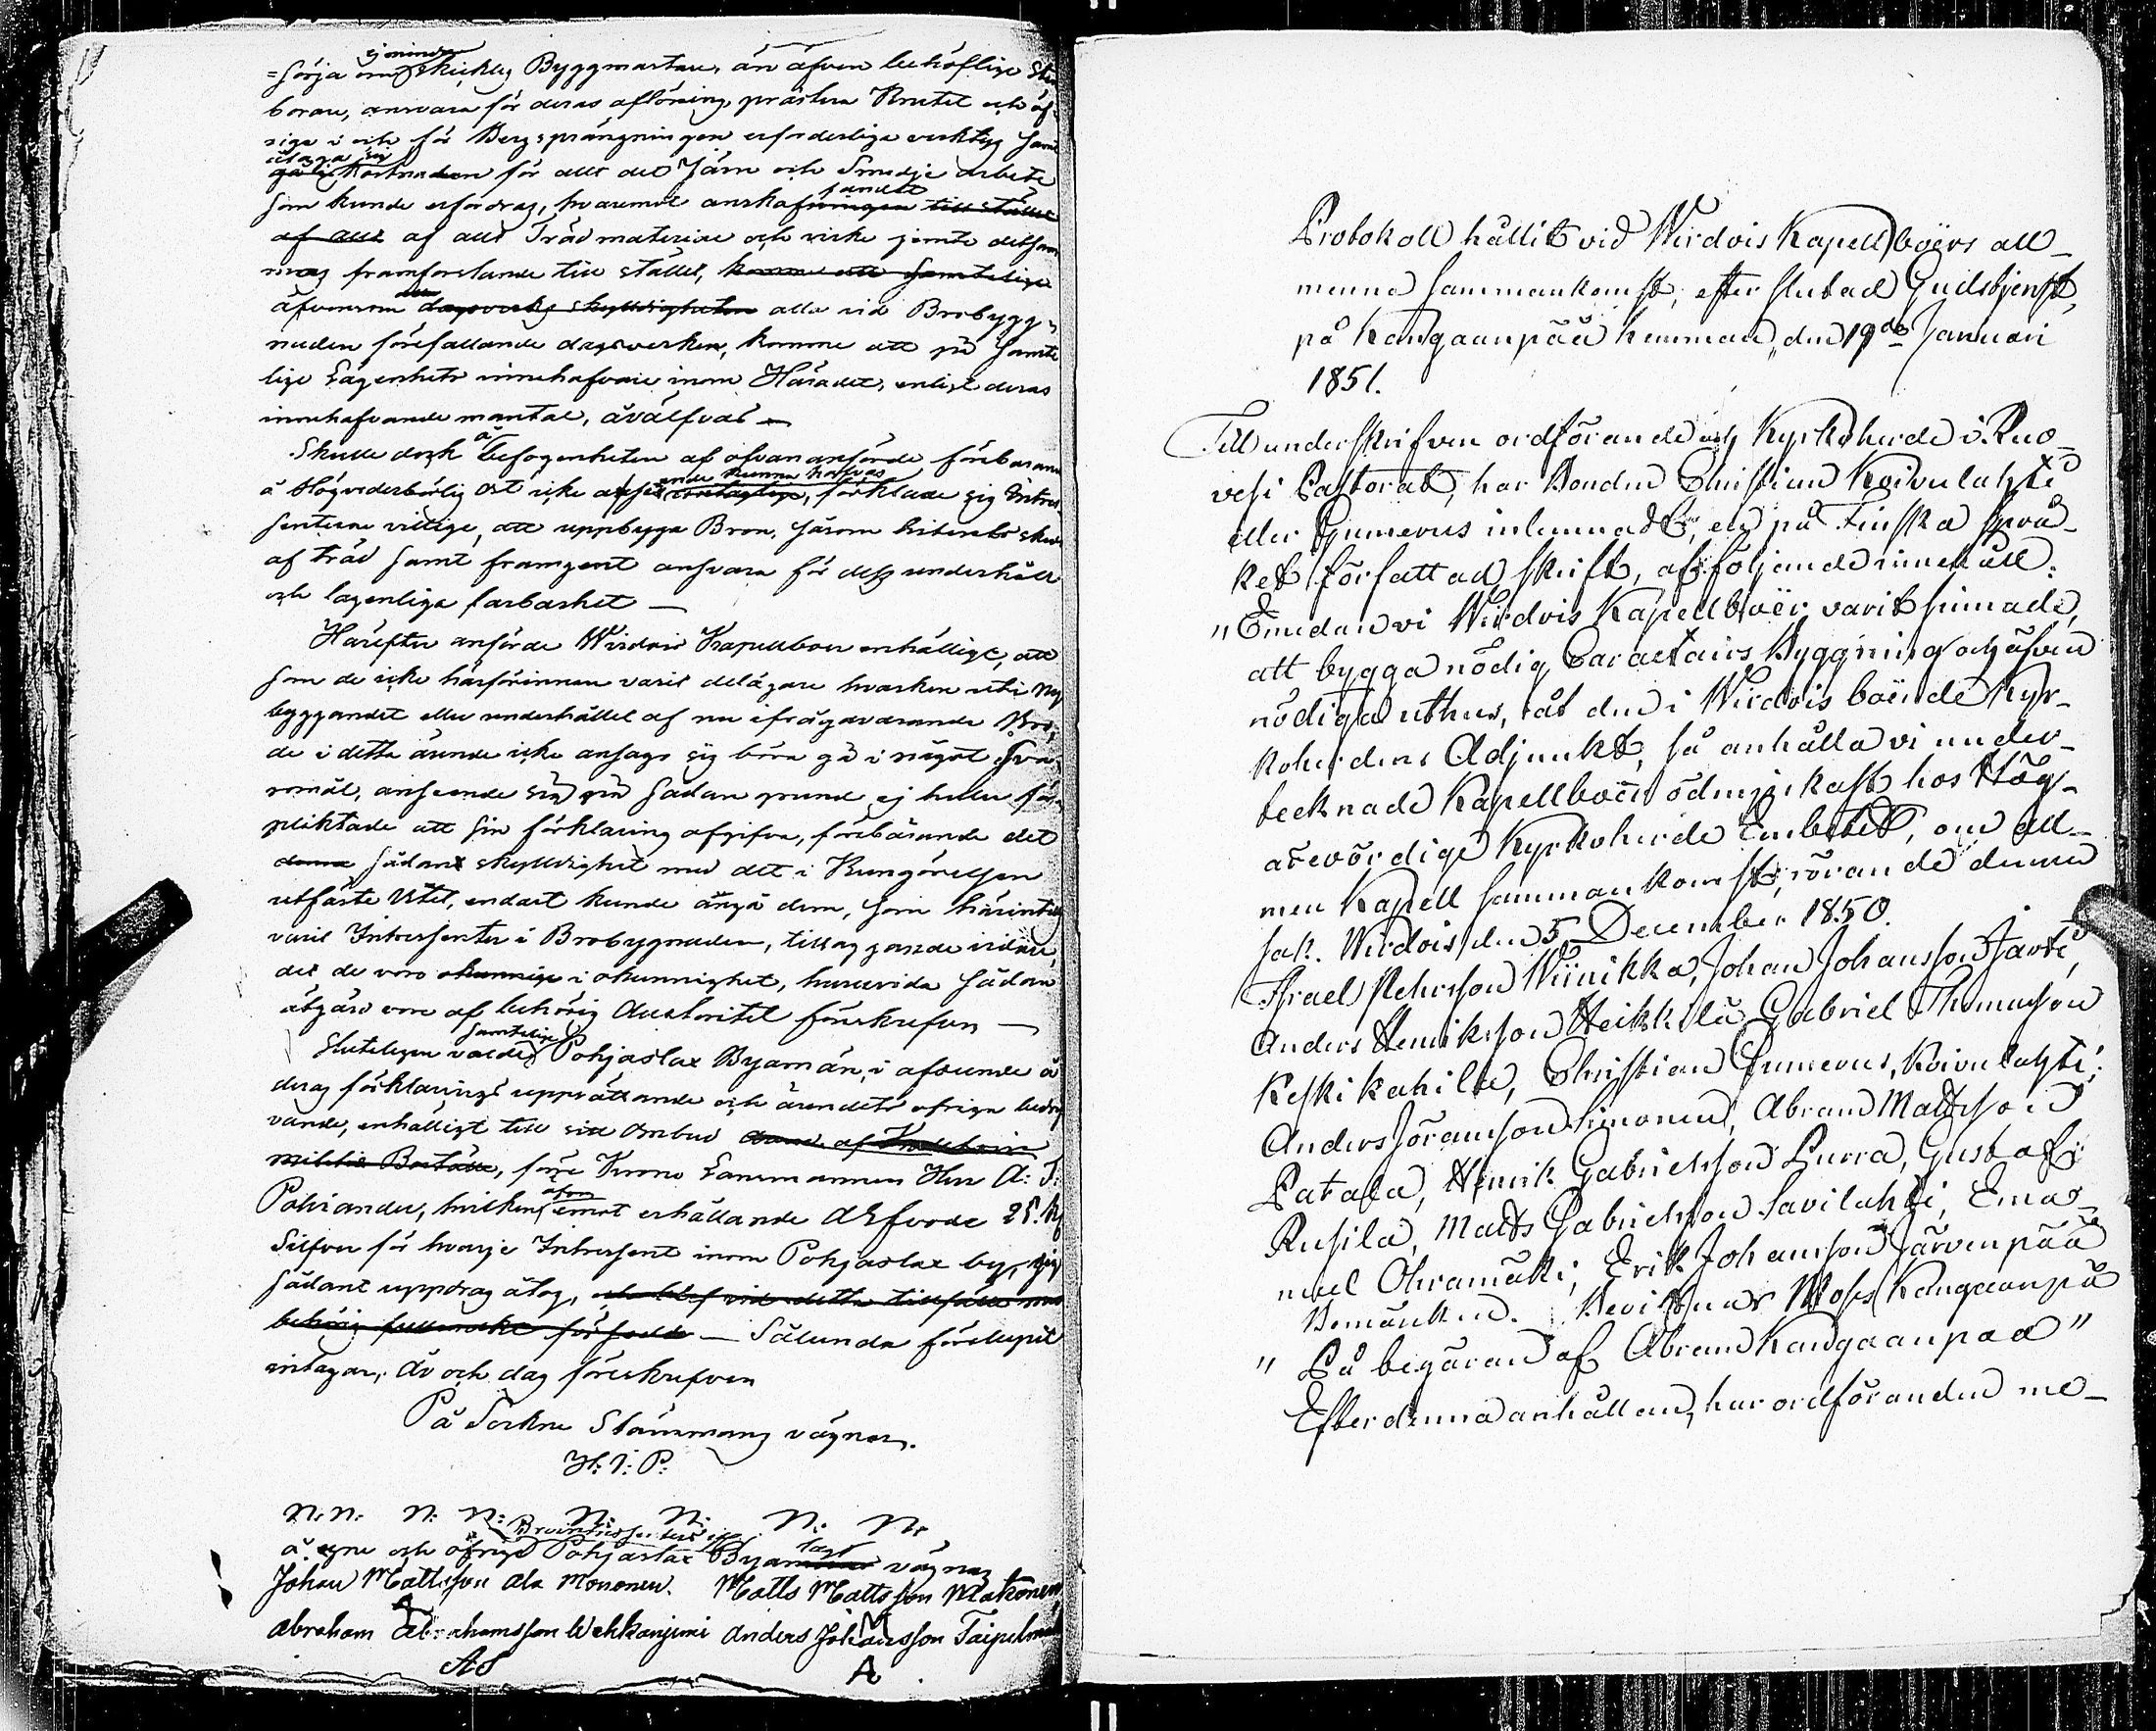 =sörja om ej mindre skicklig Byggmästare, än äfven behöflige Sten
borare, ansvara för deras aflöning, prästera Krutet och öf-
riga i och för Bergsprängningen erforderliga verktyg samt
åtaga sig kostnaden för allt det Järn och Smedje arbete
som kunde erfordras, hvaremot anskaffandet
af allt af allt Träd materiae och virke jemte detsam
mas framforslande till stället, komme att samtelige
äfvensom alla dagsverks skyldigheten alla vid Brobygg-
naden förefallande dagsverken, komme att på Samte
lige Lägenhets innehafvare inom Häradet, enligt deras
innehafvande mantal, åvälfvas —
Skulle dock befogenheten af ofvananförde förbarann
å Högvederbörlig Ort icke anses kunna hafvas, förklarade sig Intres
senterne villige, att uppbygga Bron, såsom hitintils skedt
af träd samt framgent ansvara för dess underhåll
och lagenliga farbarhet —
Härefter anförde Wirdois Kapellboer enhälligt, att
som de icke härförinnan varit delägare hvarken uti ny
byggandet eller underhållet af nu ifrågavarande Bro,
de i detta ärende icke ansågo sig böra gå i något Sva-
romål, anseende sig på sådan grund ej heller för-
pliktade att sin förklaring afgifva, förebärande det
denna sådan skyldighet med det i Kungörelsen
utfäste Vitet, endast kunde ångå dem, som härintill
varit Intressenter i Brobygnaden, tilläggande vidare,
det de voro okunnige i okunnighet, huruvida sådan
åtgärd vore af behörig Auctoritet föreskrefven —
Sluteligen valde Samtelige Pohjaslax Byamän, i afseende å
deras förklarings upprättande och ärendets öfriga bedrif
vande, enhälligt till sitt Ombud
militie Boställe, förre Krono Länsmannen Herr A: J:
Polviander, hvilken äfven emot erhållande Arfvode 25. K
Silfver för hvarje Intressent inom Pohjaslax by, sig
sådant uppdrag åtog, och blef vid detta tillfälle med
behörig fullmakt försedd — Sålunda förelupit
intagar, År och dag föreskrefven
På Sockne Stämmans vägnar.
H: J: P:
N: N: N: N: N: N: N: N:
å egne och öfrige Brointressenters i Pohjaslax Byalags vägnar
Johan Mattsson Ala Mononen. Matts Mattsson Makonen
Abraham Abrahamsson Wehkanjemi Anders Johansson Taipel
AS A
Protokoll hållit vid Wirdois Kapellboërs all-
menna sammankomst, efter slutad Gudstjenst,
på Kangaanpää hemman, den 19de Januari
1851.
Till underskrifven ordförande och Kyrkoherde i Ruo-
vesi Pastorat, har Bonden Christian Koivulahti
eller Gummerus inlemnadt, en på Finska språ-
ket författad skrift, af följande innehåll:
"Emedan vi Wirdois Kapellboër varit sinnade,
att bygga nödig Caractairs Byggning och äfven
nödiga uthus, åt den i Wirdois boende Kyr-
koherdens Adjunkt, så anhålla vi under-
tecknade Kapellboër ödmjukast hos Hög-
ärevördige Kyrkoherde Embetet, om all-
men Kapell sammankomst, rörande denna
sak. Wirdois den 5 December 1850.
Israel Pehrsson Wiinikka, Johan Johansson Jäste,
Anders Henriksson Heikkilä Gabriel Thomasson
Keski kahila, Christian Gummerus, Koivulahti;
Anders Jöransson Simonen, Abram Mattsson
Patala, Henrik Gabrielsson Purra, Gustaf
Rusila, Matts Gabrielsson Savilahti, Ema-
nuel Ohramäki, Erik Johansson Järvenpää
Bomärken. Bevittnar Moses Kangaanpä
" På begäran af Abram Kangaanpää "
Efter denna anhållan, har ordföranden me-